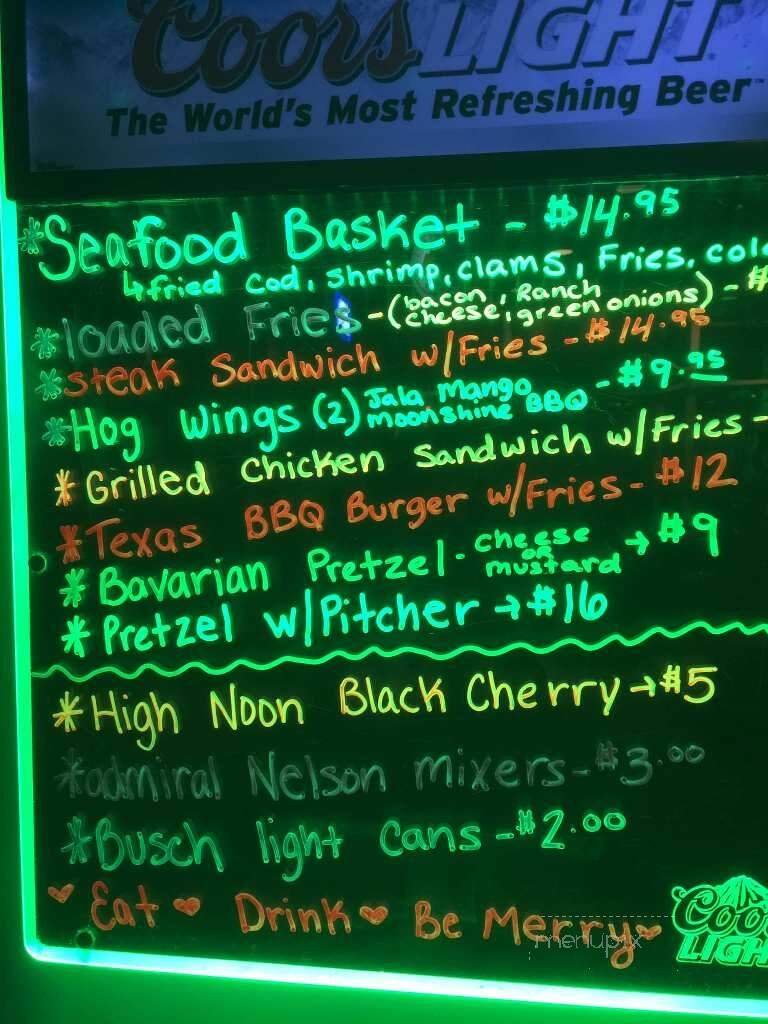 Coors LIGHT
The World's Most Refreshing Beer
*Seafood Basket - $14.95
↳fried cod, shrimp, clams, Fries,
*loaded Fries -(bacon, Ranch
cheese, green onions) - $
*steak Sandwich w/Fries - $14.95
*Hog Wings (2) Jala Mango
Moonshine BBQ - $9.95
*Grilled Chicken Sandwich w/Fries -
*Texas BBQ Burger w/Fries - $12
*Bavarian Pretzel - cheese
or
mustard → $9
*Pretzel w/Pitcher → $16
*High Noon Black Cherry → $5
*admiral Nelson mixers - $3.00
*Busch light Cans - $2.00
♥ Eat ♥ Drink ♥ Be Merry ♥
menupix
Coors
LIGHT